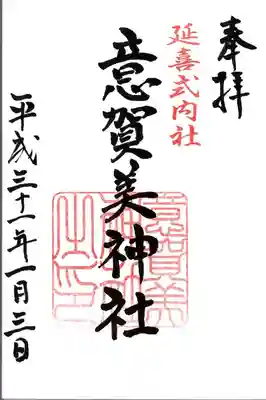 奉拝
延喜式内社
意賀美神社
平成三十一年一月三日
意賀美
神社
之印